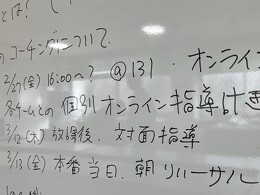 とは?
コーチングについて.
2/27(金) 16:00〜? @131. オンライ
各チームとの個別オンライン指導計画
3/12(木) 放課後. 対面指導
3/13(金) 本番当日. 朝リハーサル